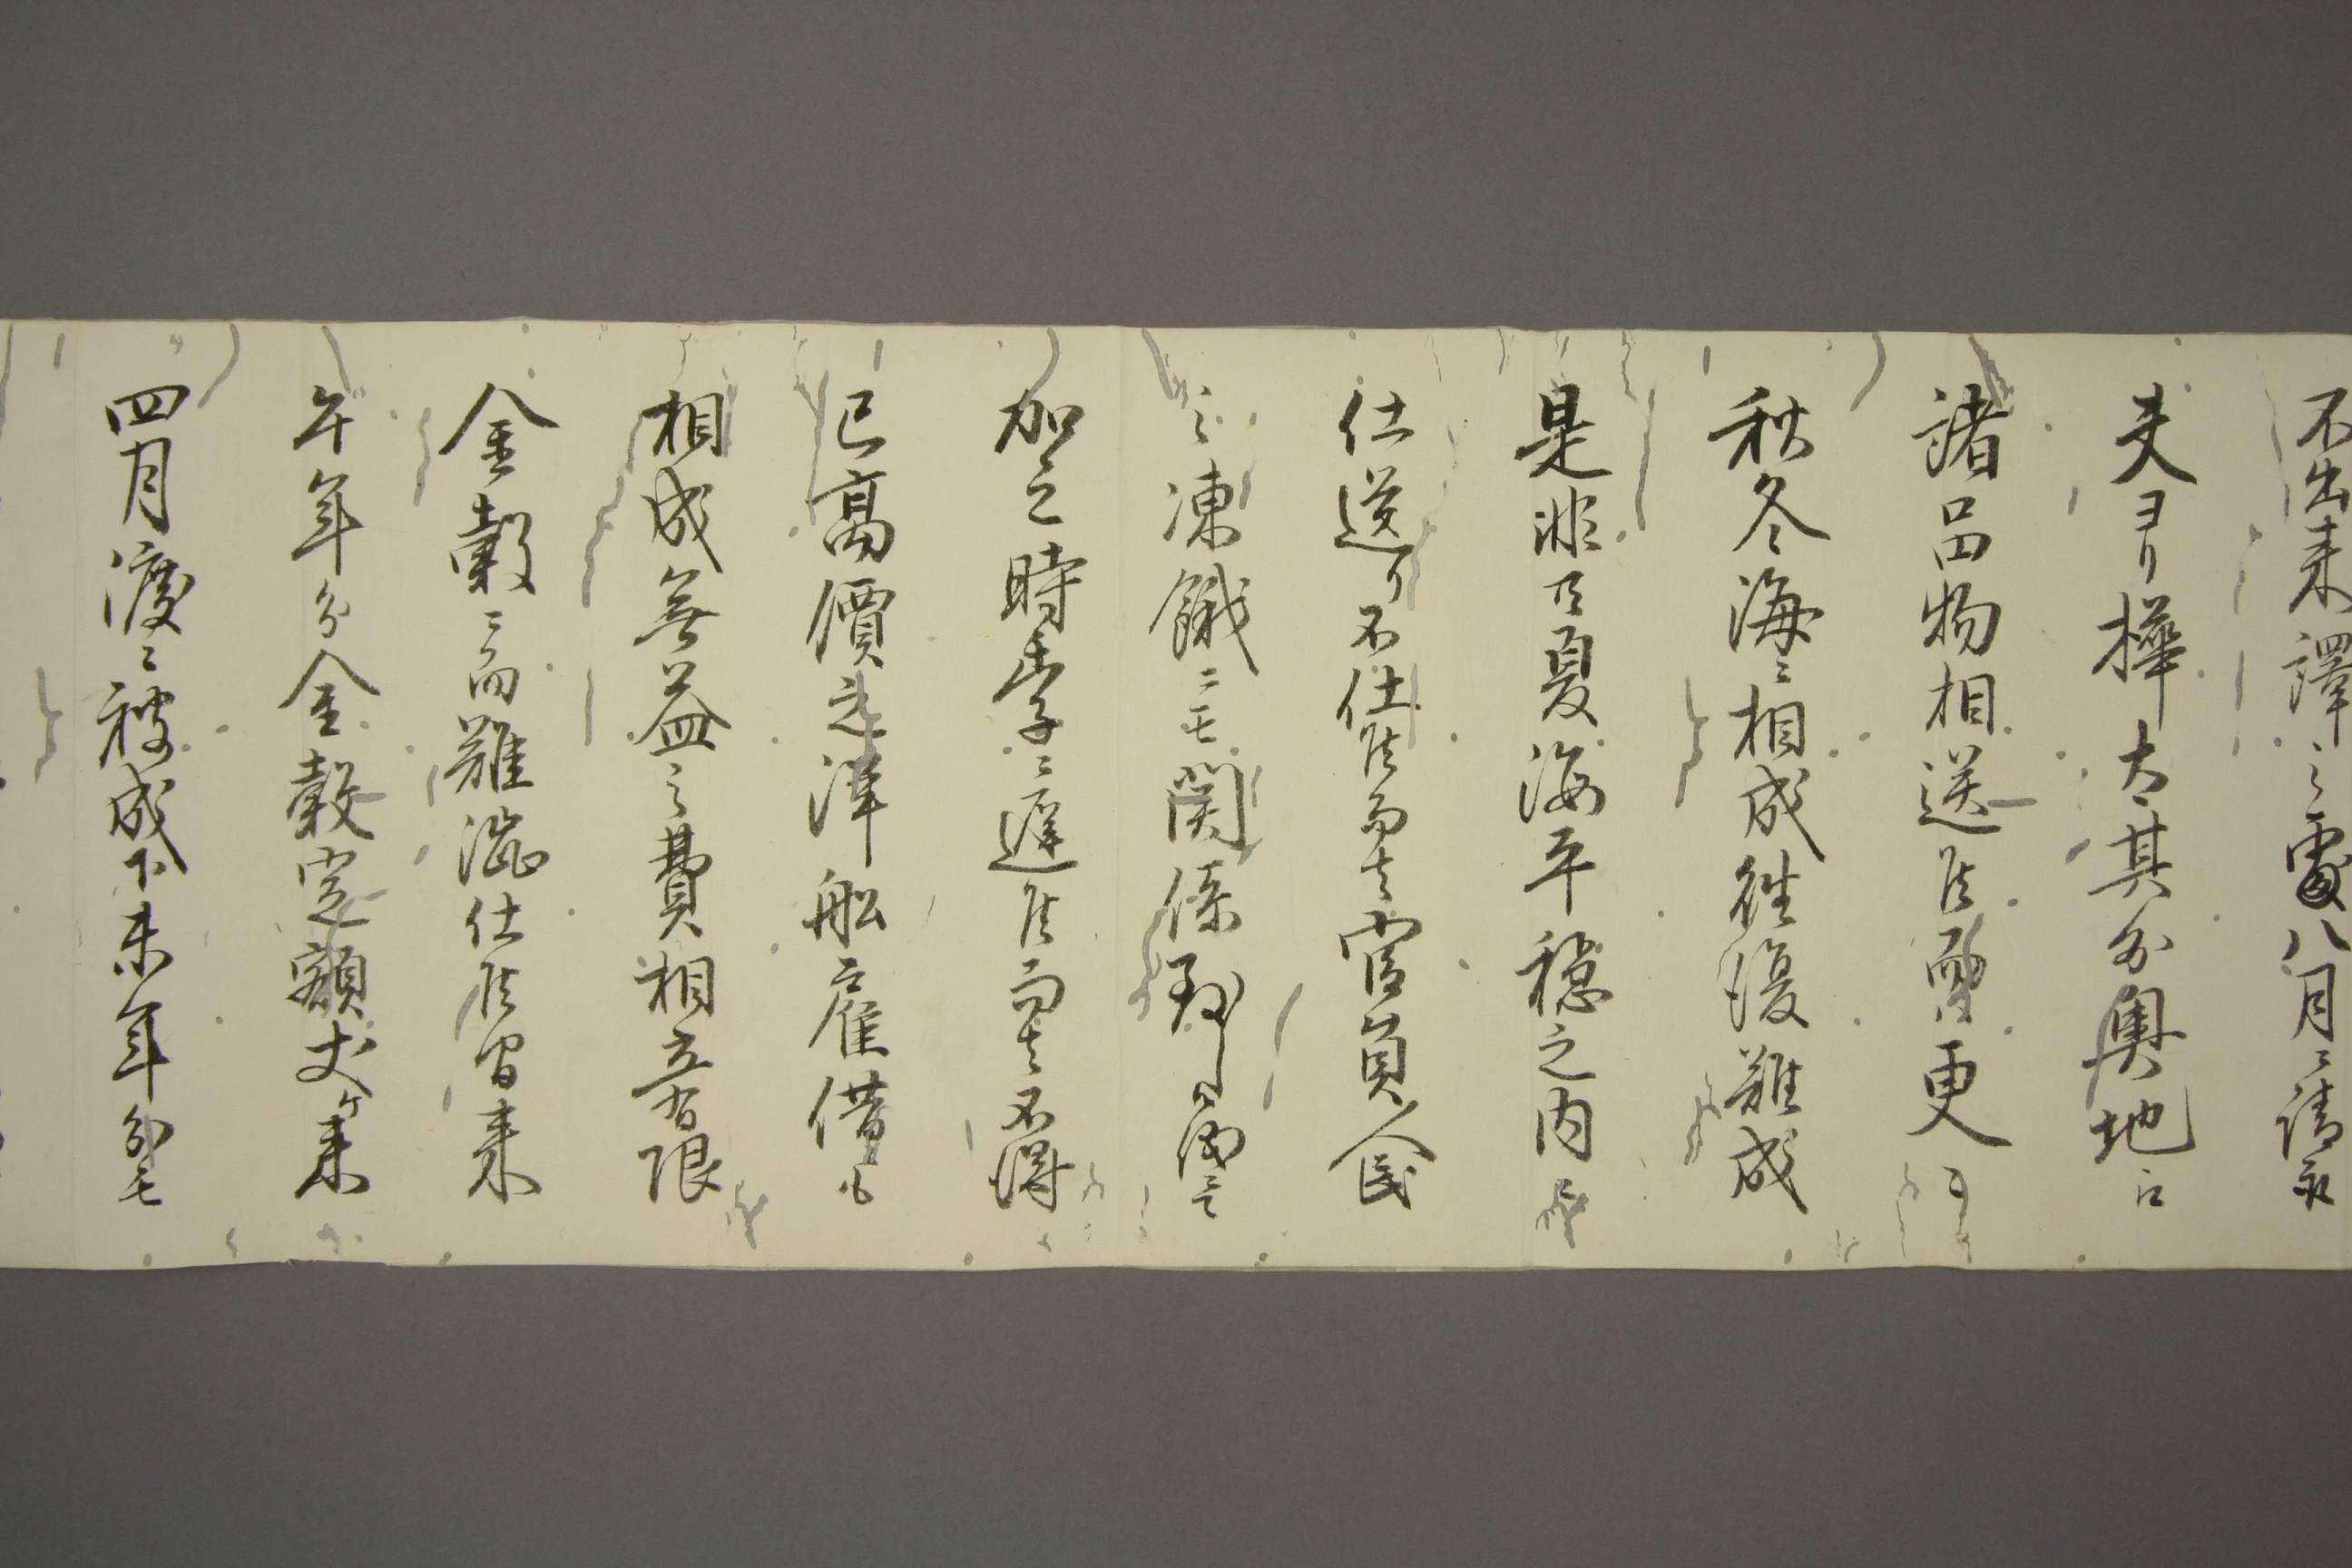 不出来譯之處八月ニ請取
夫ヨリ樺太其外奥地江
諸品物相送候而ハ更ニ
秋冬海ニ相成往復難成
是非乃夏海平穏之内
仕送リ不仕候而者官員人民
之凍餓ニモ関係致シ候
加之時季ニ遅候而者不得
已高價之洋船雇借も
相成無益之費相立有限
金穀ニ而難澁仕候間来
午年分金穀定額丈ケ来
四月渡ニ被成下未年分モ